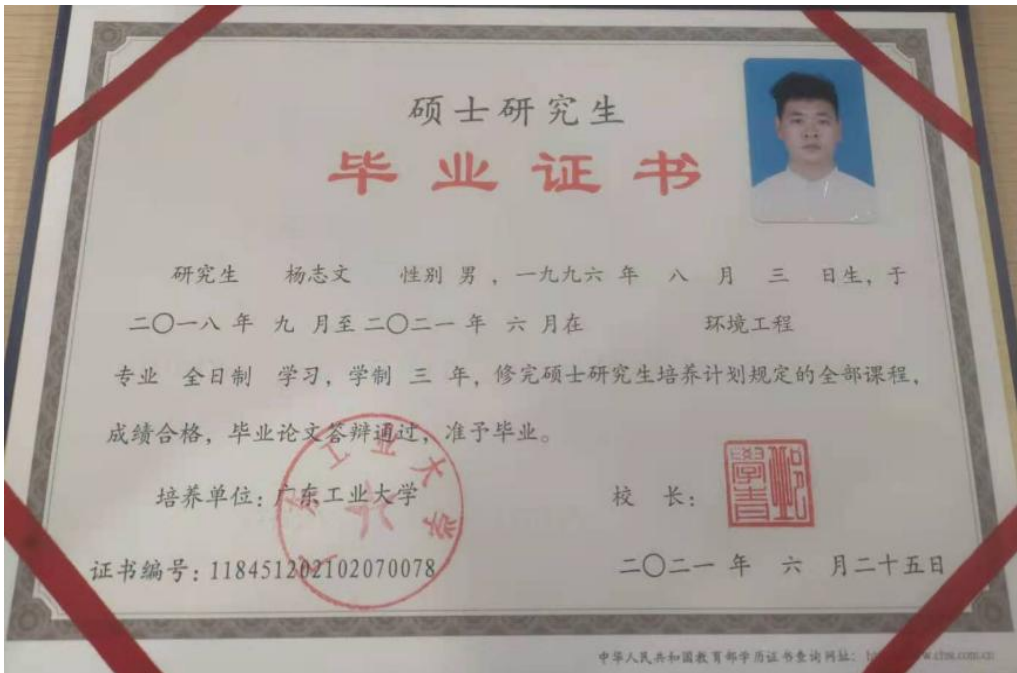 硕士研究生
毕业证书
研究生 杨志文 性别 男，一九九六 年 八 月 三 日生，于
二〇一八 年 九 月至二〇二一 年 六 月在 环境工程
专业 全日制 学习，学制 三 年，修完硕士研究生培养计划规定的全部课程，
成绩合格，毕业论文答辩通过，准予毕业。
培养单位：广东工业大学 校 长：
证书编号：118451202102070078 二〇二一 年 六 月二十五日
中华人民共和国教育部学历证书查询网址：
工业大学